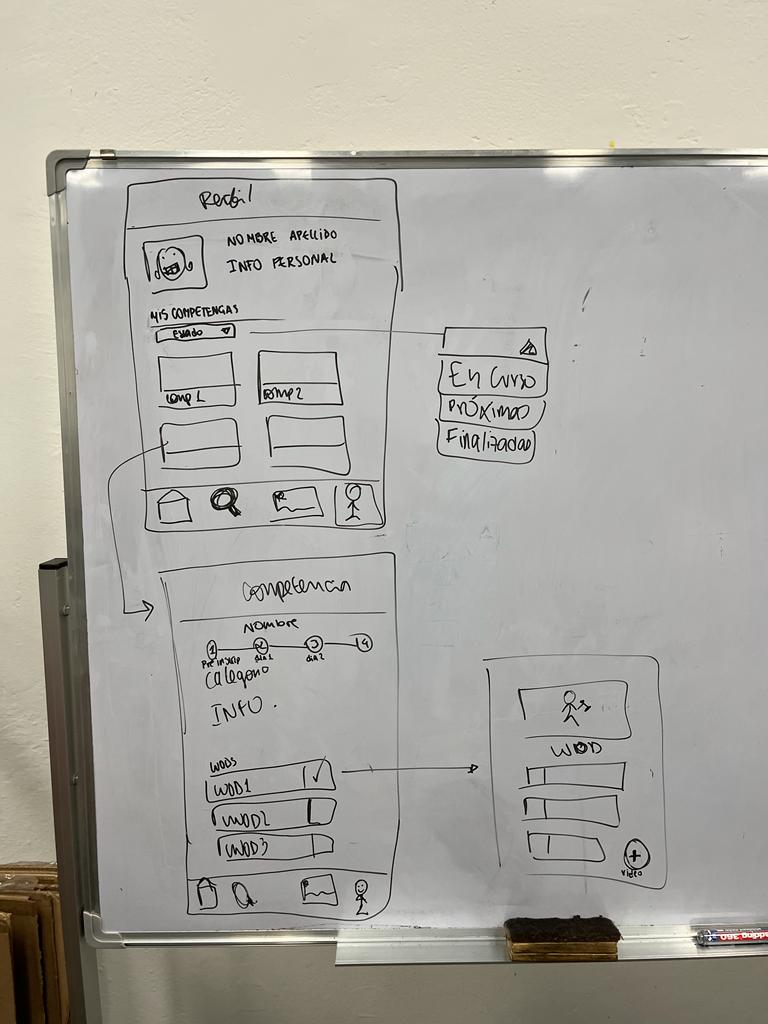 Perfil
NOMBRE APELLIDO
INFO PERSONAL
MIS COMPETENCIAS
Estado
comp 1
comp 2
En Curso
Próximas
Finalizadas
Competencia
Nombre
1
2
3
4
Pre inscrip
dia 1
dia 2
Categoria
INFO.
WODS
WOD1
WOD2
WOD3
WOD
+
video